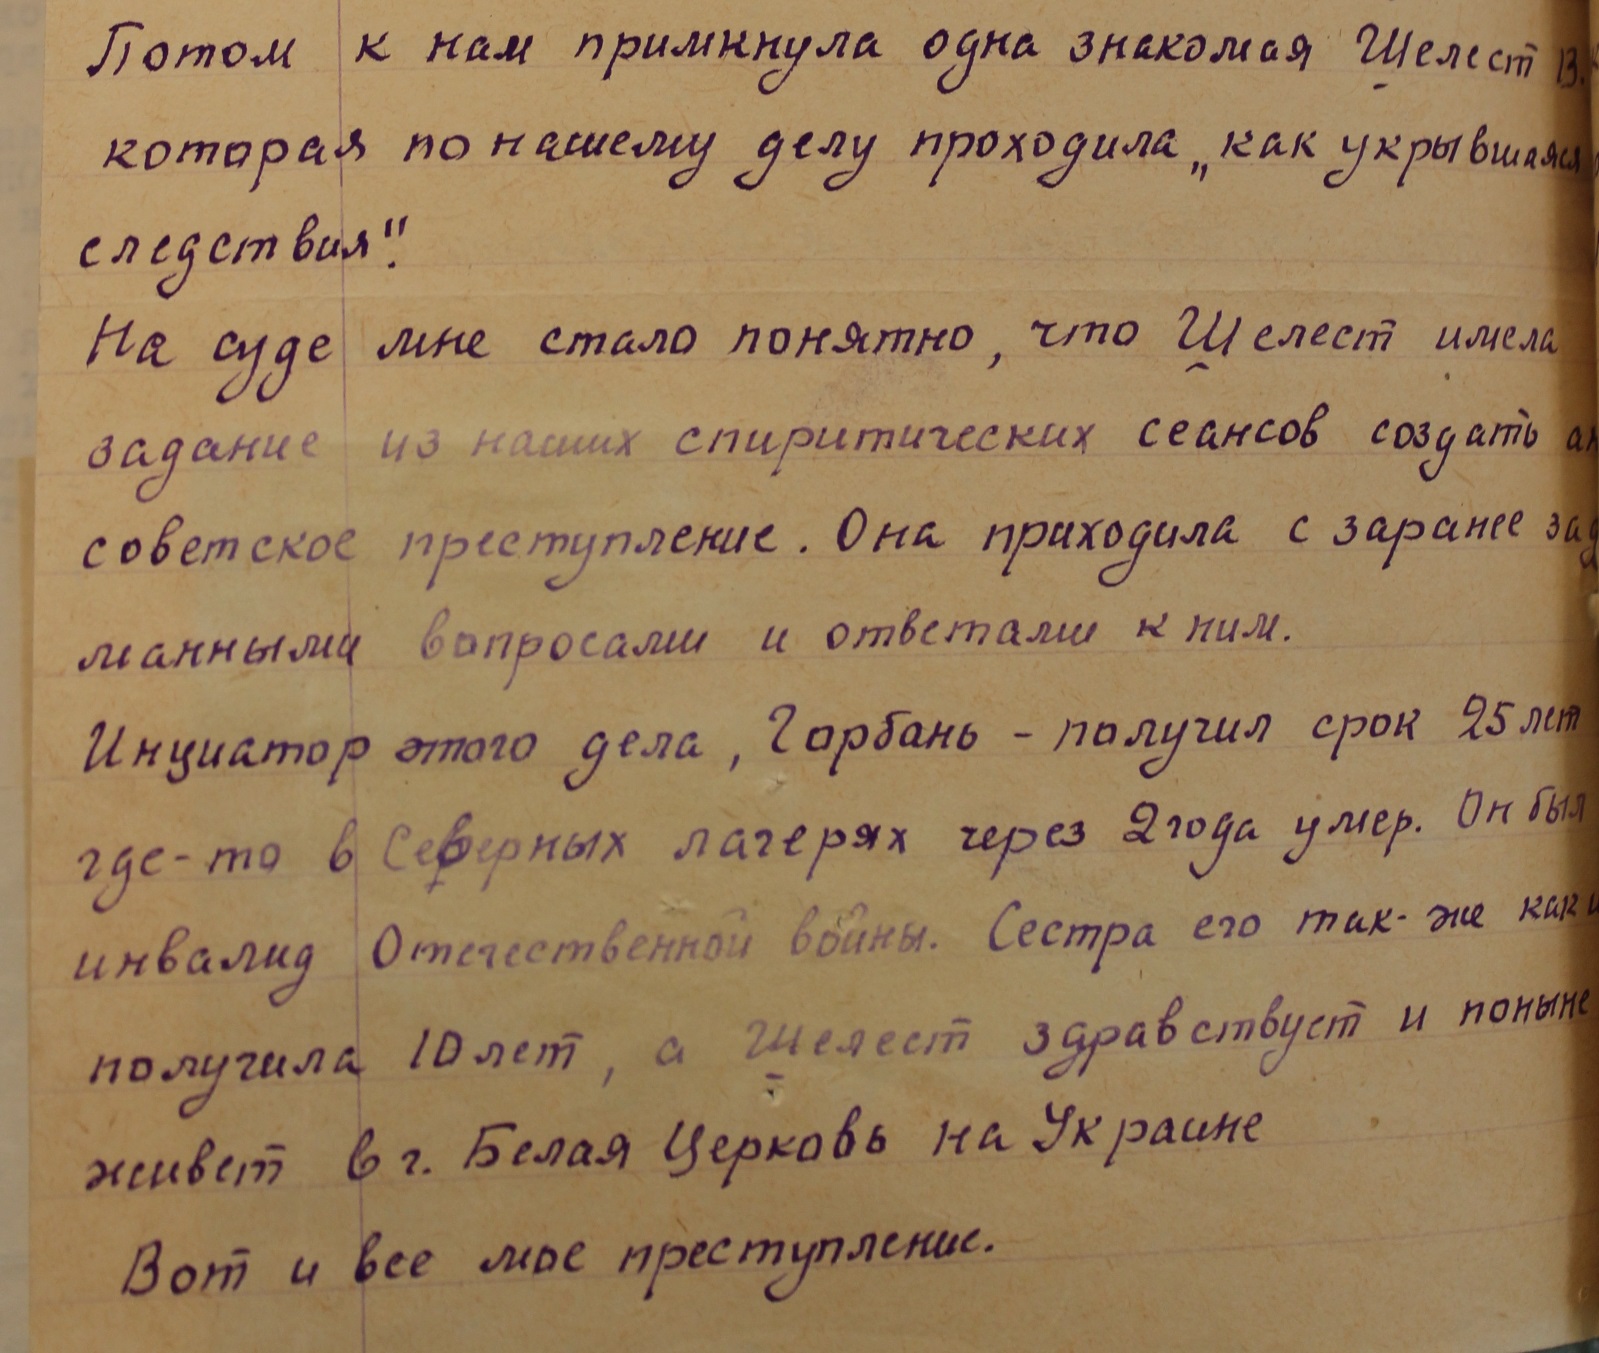 Потом к нам примкнула одна знакомая Шелест В.
которая по нашему делу проходила „как укрывшаяся
следствия".
На суде мне стало понятно, что Шелест имела
задание из наших спиритических сеансов создать ан
советское преступление. Она приходила с заранее зад
манными вопросами и ответами к ним.
Инциатор этого дела, Горбань - получил срок 25 лет
где-то в Северных лагерях через 2 года умер. Он был
инвалид Отечественной войны. Сестра его так-же как и
получила 10 лет, а Шелест здравствует и поныне
живет в г. Белая Церковь на Украине
Вот и все мое преступление.